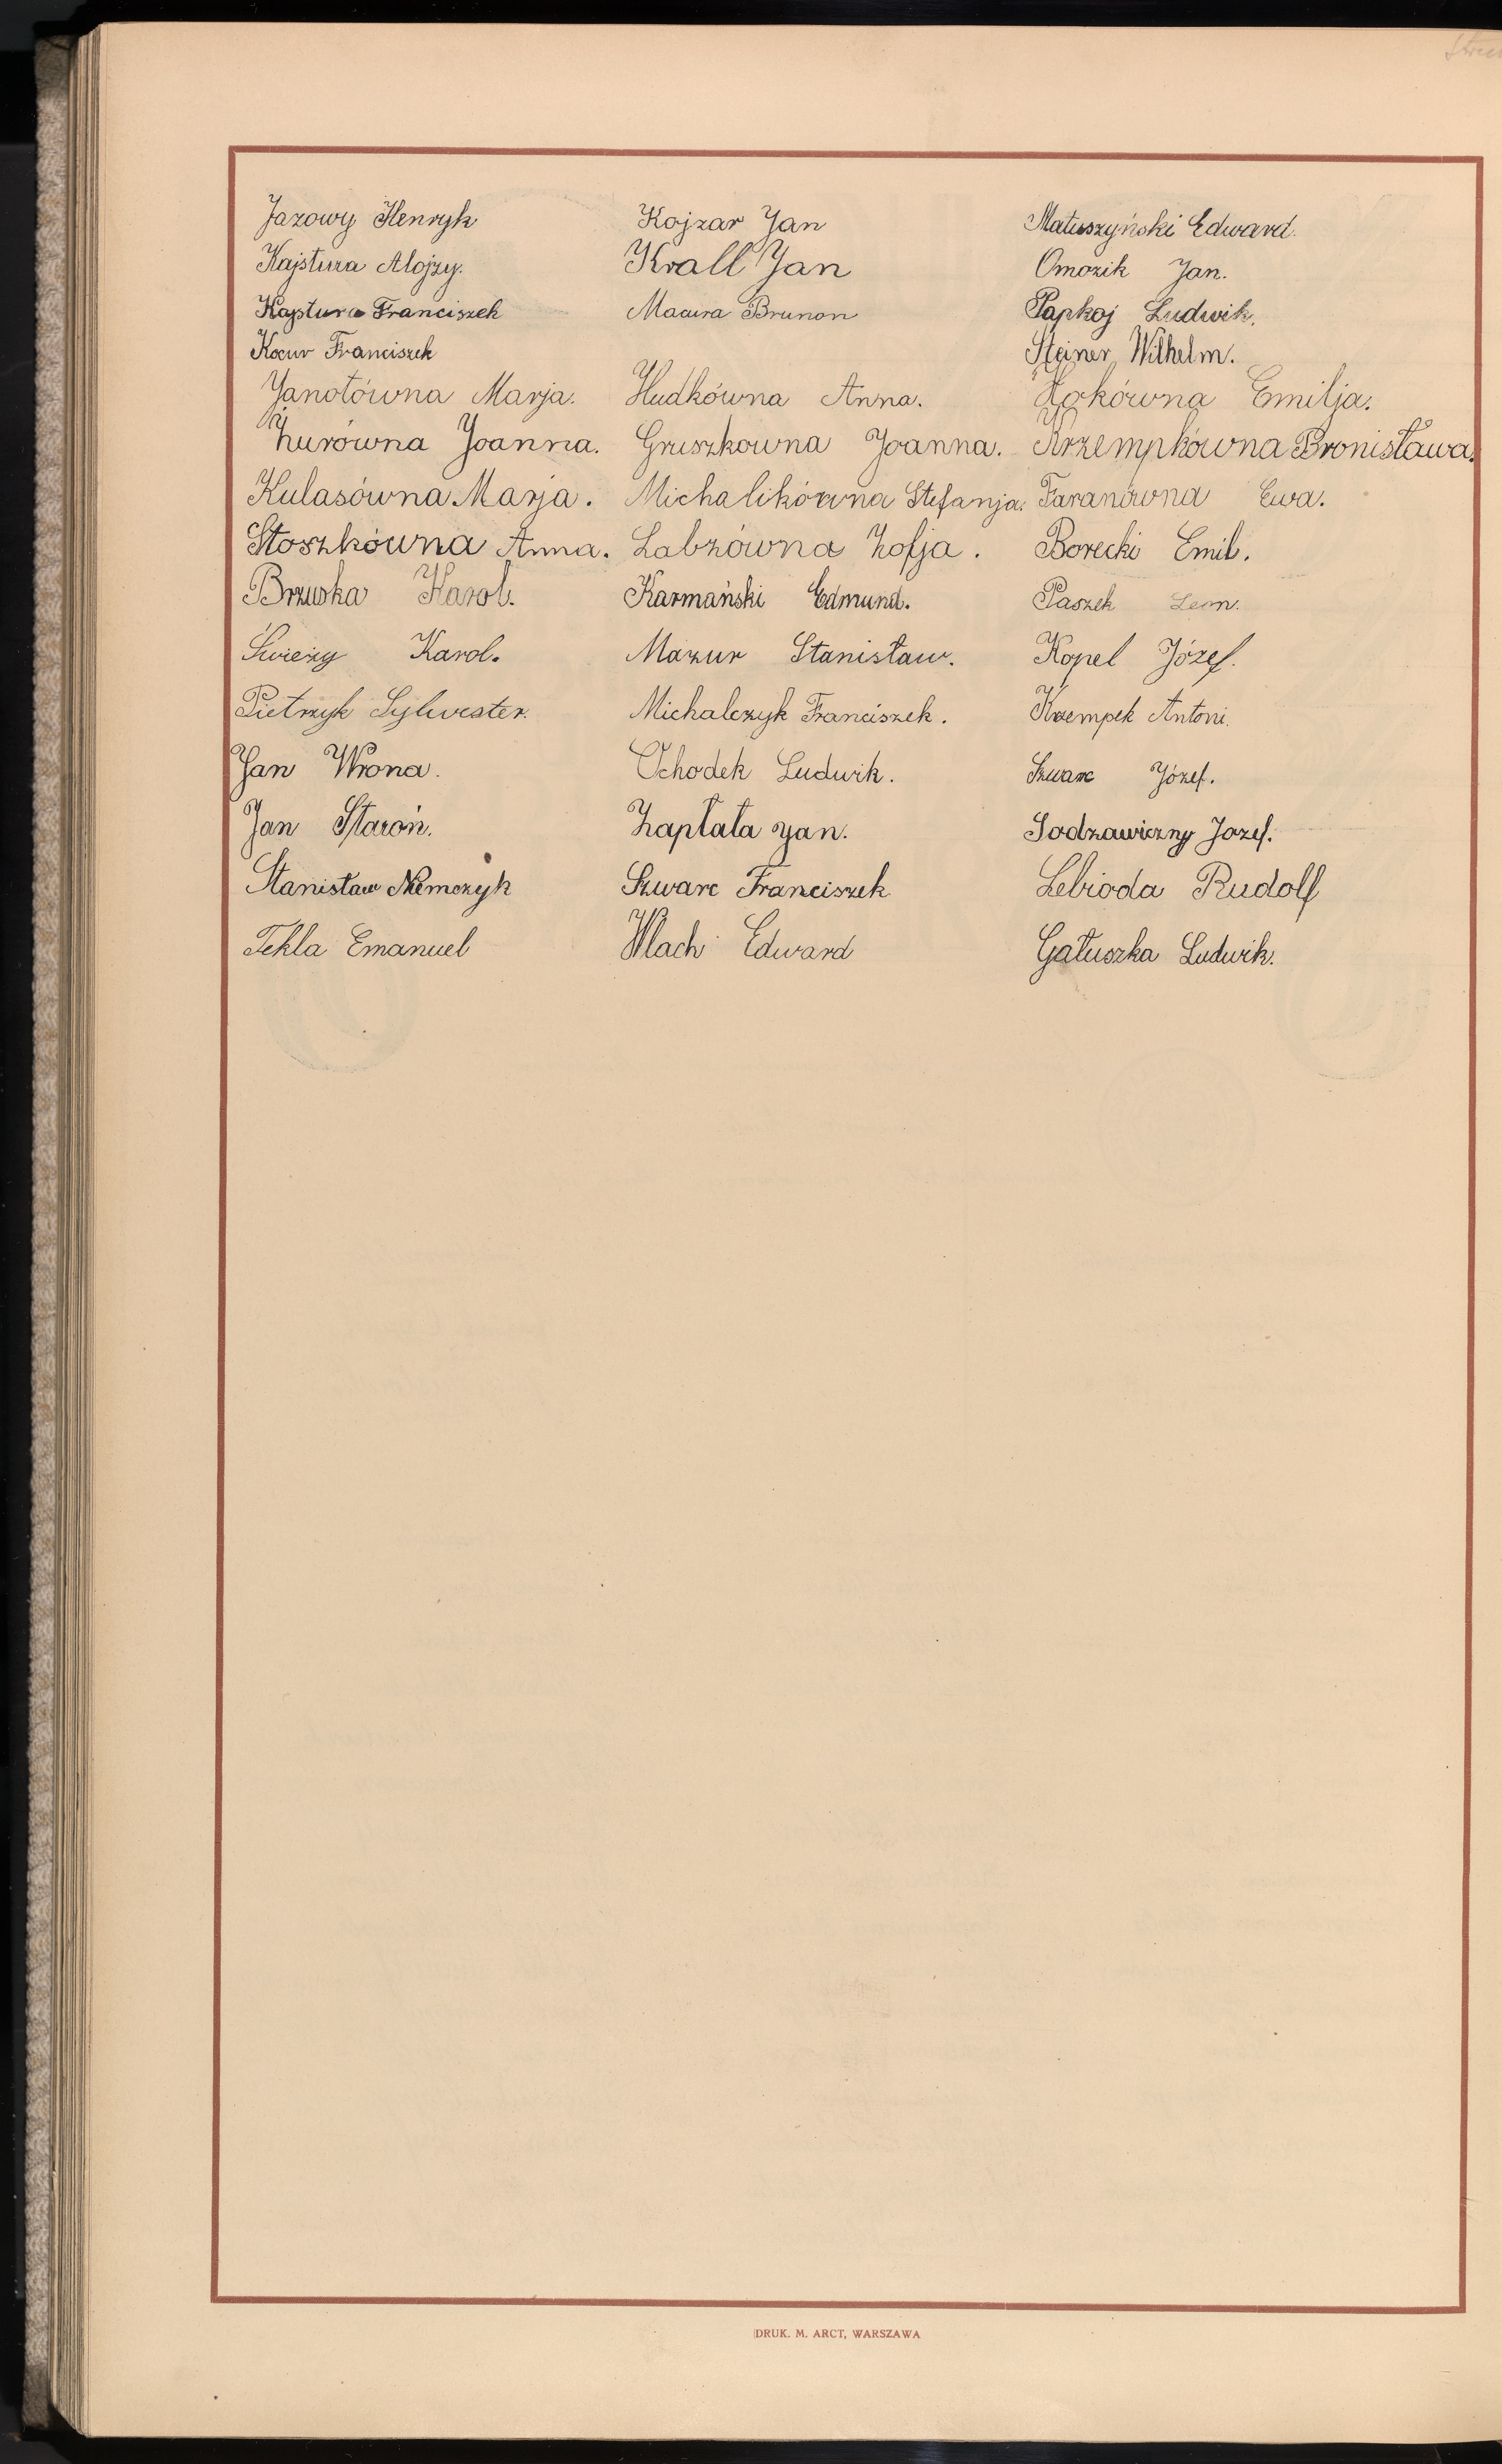 Jazowy Henryk Kojzar Jan Matuszyński Edward.
Kajstura Alojzy. Krall Jan Omozik Jan.
Kajstura Franciszek Macura Brunon Papkoj Ludwik.
Kocur Franciszek Steiner Wilhelm.
Janotówna Marja. Hudkówna Anna. Emilja.
Żurówna Joanna. Gruszkowna Joanna. Krzempkówna Bronisława.
Kulasówna Marja. Michalikówna Stefanja. Faranówna Ewa.
Stoszkówna Anna. Labzówna Zofja. Borecki Emil.
Brzuska Karol. Karmański Edmund. Paszek Leon.
Świeży Karol. Mazur Stanisław. Kopel Józef.
Pietrzyk Sylwester. Michalczyk Franciszek. Krzempek Antoni.
Jan Wrona. Ochodek Ludwik. Szwarc Józef.
Jan Staroń. Zapłata Jan. Sodzawiczny Jozef.
Stanisław Niemczyk Szwarc Franciszek Lebioda Rudolf
Tekla Emanuel Wlach Edward Gałuszka Ludwik.
DRUK. M. ARCT, WARSZAWA